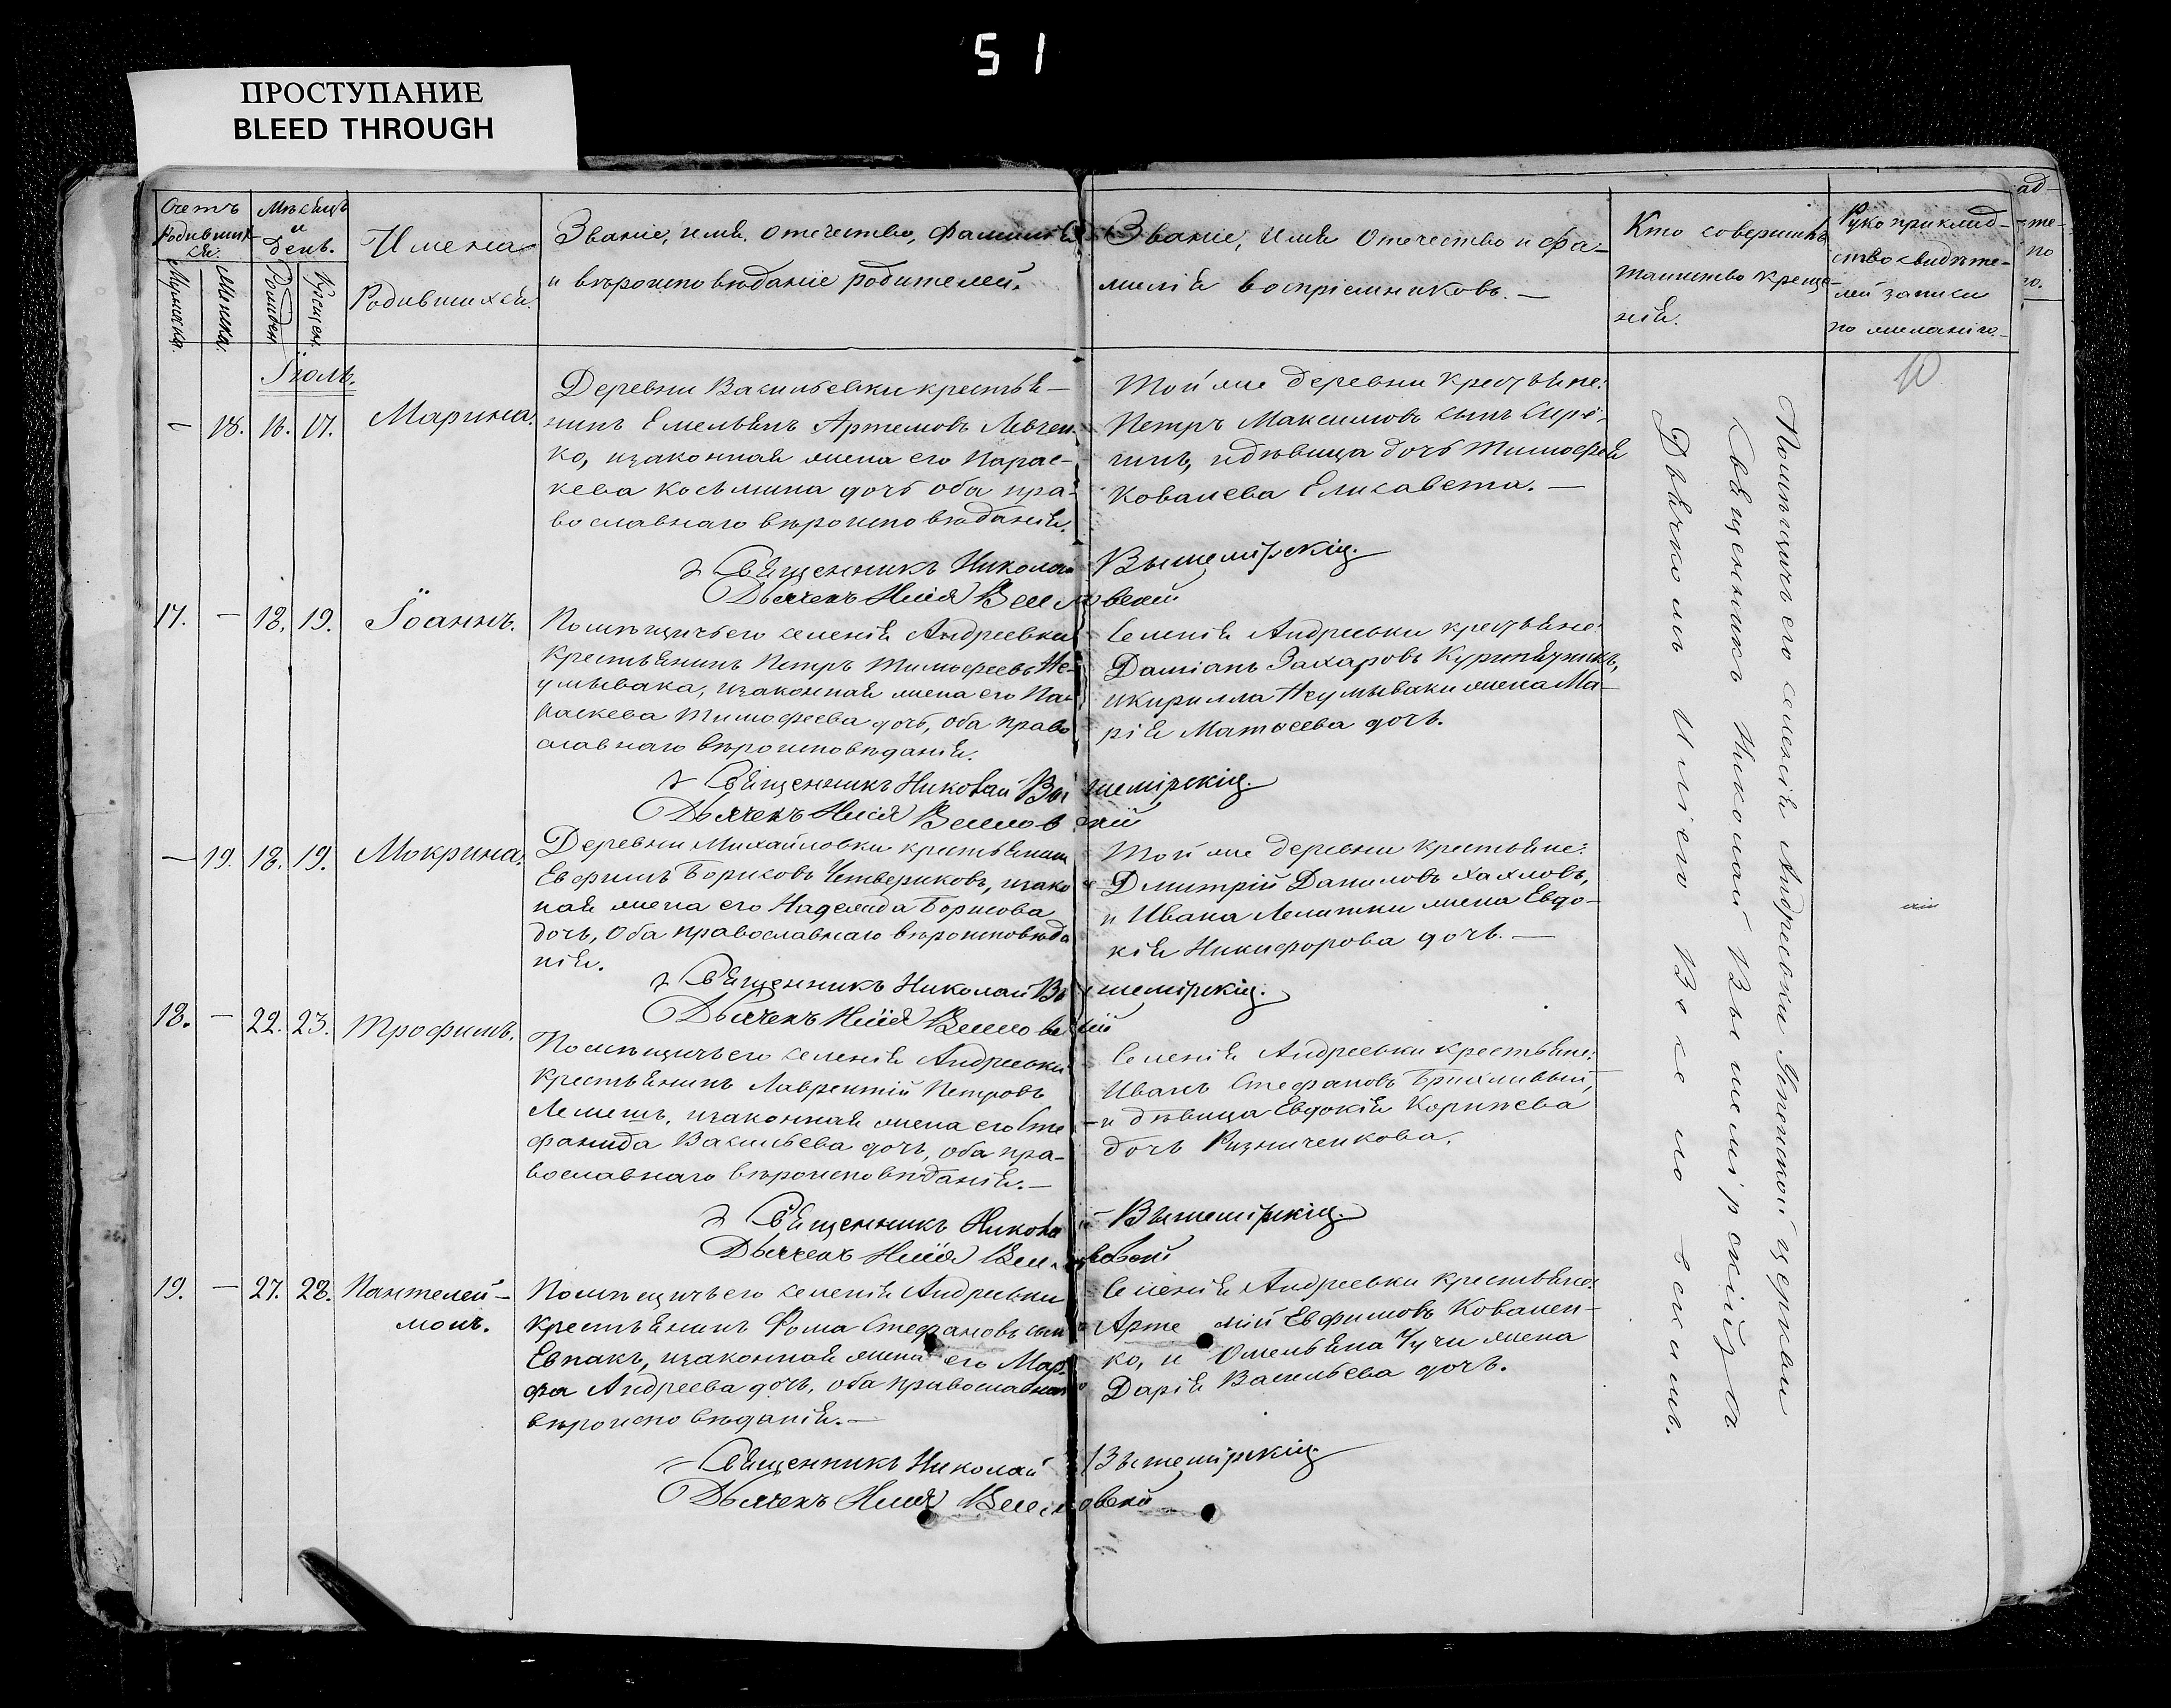 51
ПРОСТУПАНИЕ
BLEED THROUGH
Счетъ
Родивших
ся.
Мужска.
Женска.
Мѣсяцъ
и
день.
Рожден
Крещен.
Имена
Родившихся.
Званіе, имя, отечество, фамилія
и вѣроисповѣданіе родителей.
Званіе, имя отечество и фа-
милія воспріемниковъ. —
Кто совершилъ
таинство креще-
нія.
Рукоприклад-
ство свидѣте-
лей записи
по желанію.
Іюль.
— 18. 16. 17. Марина.
Деревни Васильевки крестья-
нинъ Емельянъ Артемовъ Левчен-
ко, и законная жена его Парас-
кева Косьмина дочь оба пра-
вославнаго вѣроисповѣданія.
Той же деревни крестьяне:
Петръ Максимовъ сынъ
и дѣвица дочь Тимофея
Ковалева Елисавета. —
Священникъ Николай Вышемірскій.
Дьячекъ Илія Веселовскій
17. — 18. 19. Іоаннъ.
Помѣщичьего селенія Андреевки
крестьянинъ Петръ Тимофеевъ Не-
умывака, и законная жена его Па-
раскева Тимофеева дочь, оба право
славнаго вѣроисповѣданія.
Селенія Андреевки крестьяне:
Даміанъ Захаровъ
и Кирилла Неумываки жена Ма-
рія Матѳеева дочь.
Священникъ Николай Вышемірскій.
Дьячекъ Илія Веселовскій
— 19. 18. 19. Мокрина.
Деревни Михайловки крестьянинъ
Евфимъ Борисовъ Четвериковъ, и закон
ная жена его Надежда Борисова
дочь, оба православнаго вѣроисповѣда
нія.
Той же деревни крестьяне:
Дмитрій Даниловъ Хахловъ,
и Ивана жена Евдо-
кія Никифорова дочь. —
Священникъ Николай Вышемірскій.
Дьячекъ Илія Веселовскій
18. — 22. 23. Трофимъ.
Помѣщичьего селенія Андреевки
крестьянинъ Лаврентій Петровъ
Лемешъ, и законная жена его Сте
фанида Васильева дочь, оба пра-
вославнаго вѣроисповѣданія. —
Селенія Андреевки крестьяне:
Иванъ Стефановъ Брихливый,
и дѣвица Евдокія Корнѣева
дочь Резниченкова.
Священникъ Николай Вышемірскій.
Дьячекъ Илія Веселовскій
19. — 27. 28. Пантелей-
монъ.
Помѣщичьего селенія Андреевки
крестьянинъ Фома Стефановъ сынъ
Евпакъ, и законная жена его Мар
фа Андреева дочь, оба православнаго
вѣроисповѣданія. —
Селенія Андреевки крестьяне:
Артемій Евфимовъ Ковален-
ко, и Омельяна жена
Дарія Васильева дочь.
Священникъ Николай Вышемірскій
Дьячекъ Илія Веселовскій
Помѣщичьего селенія Андреевки Успенской церкви
Священникъ Николай Вышемірскій съ
Дьячкомъ Иліею Веселовскимъ.
ад-
-те-
по
го.